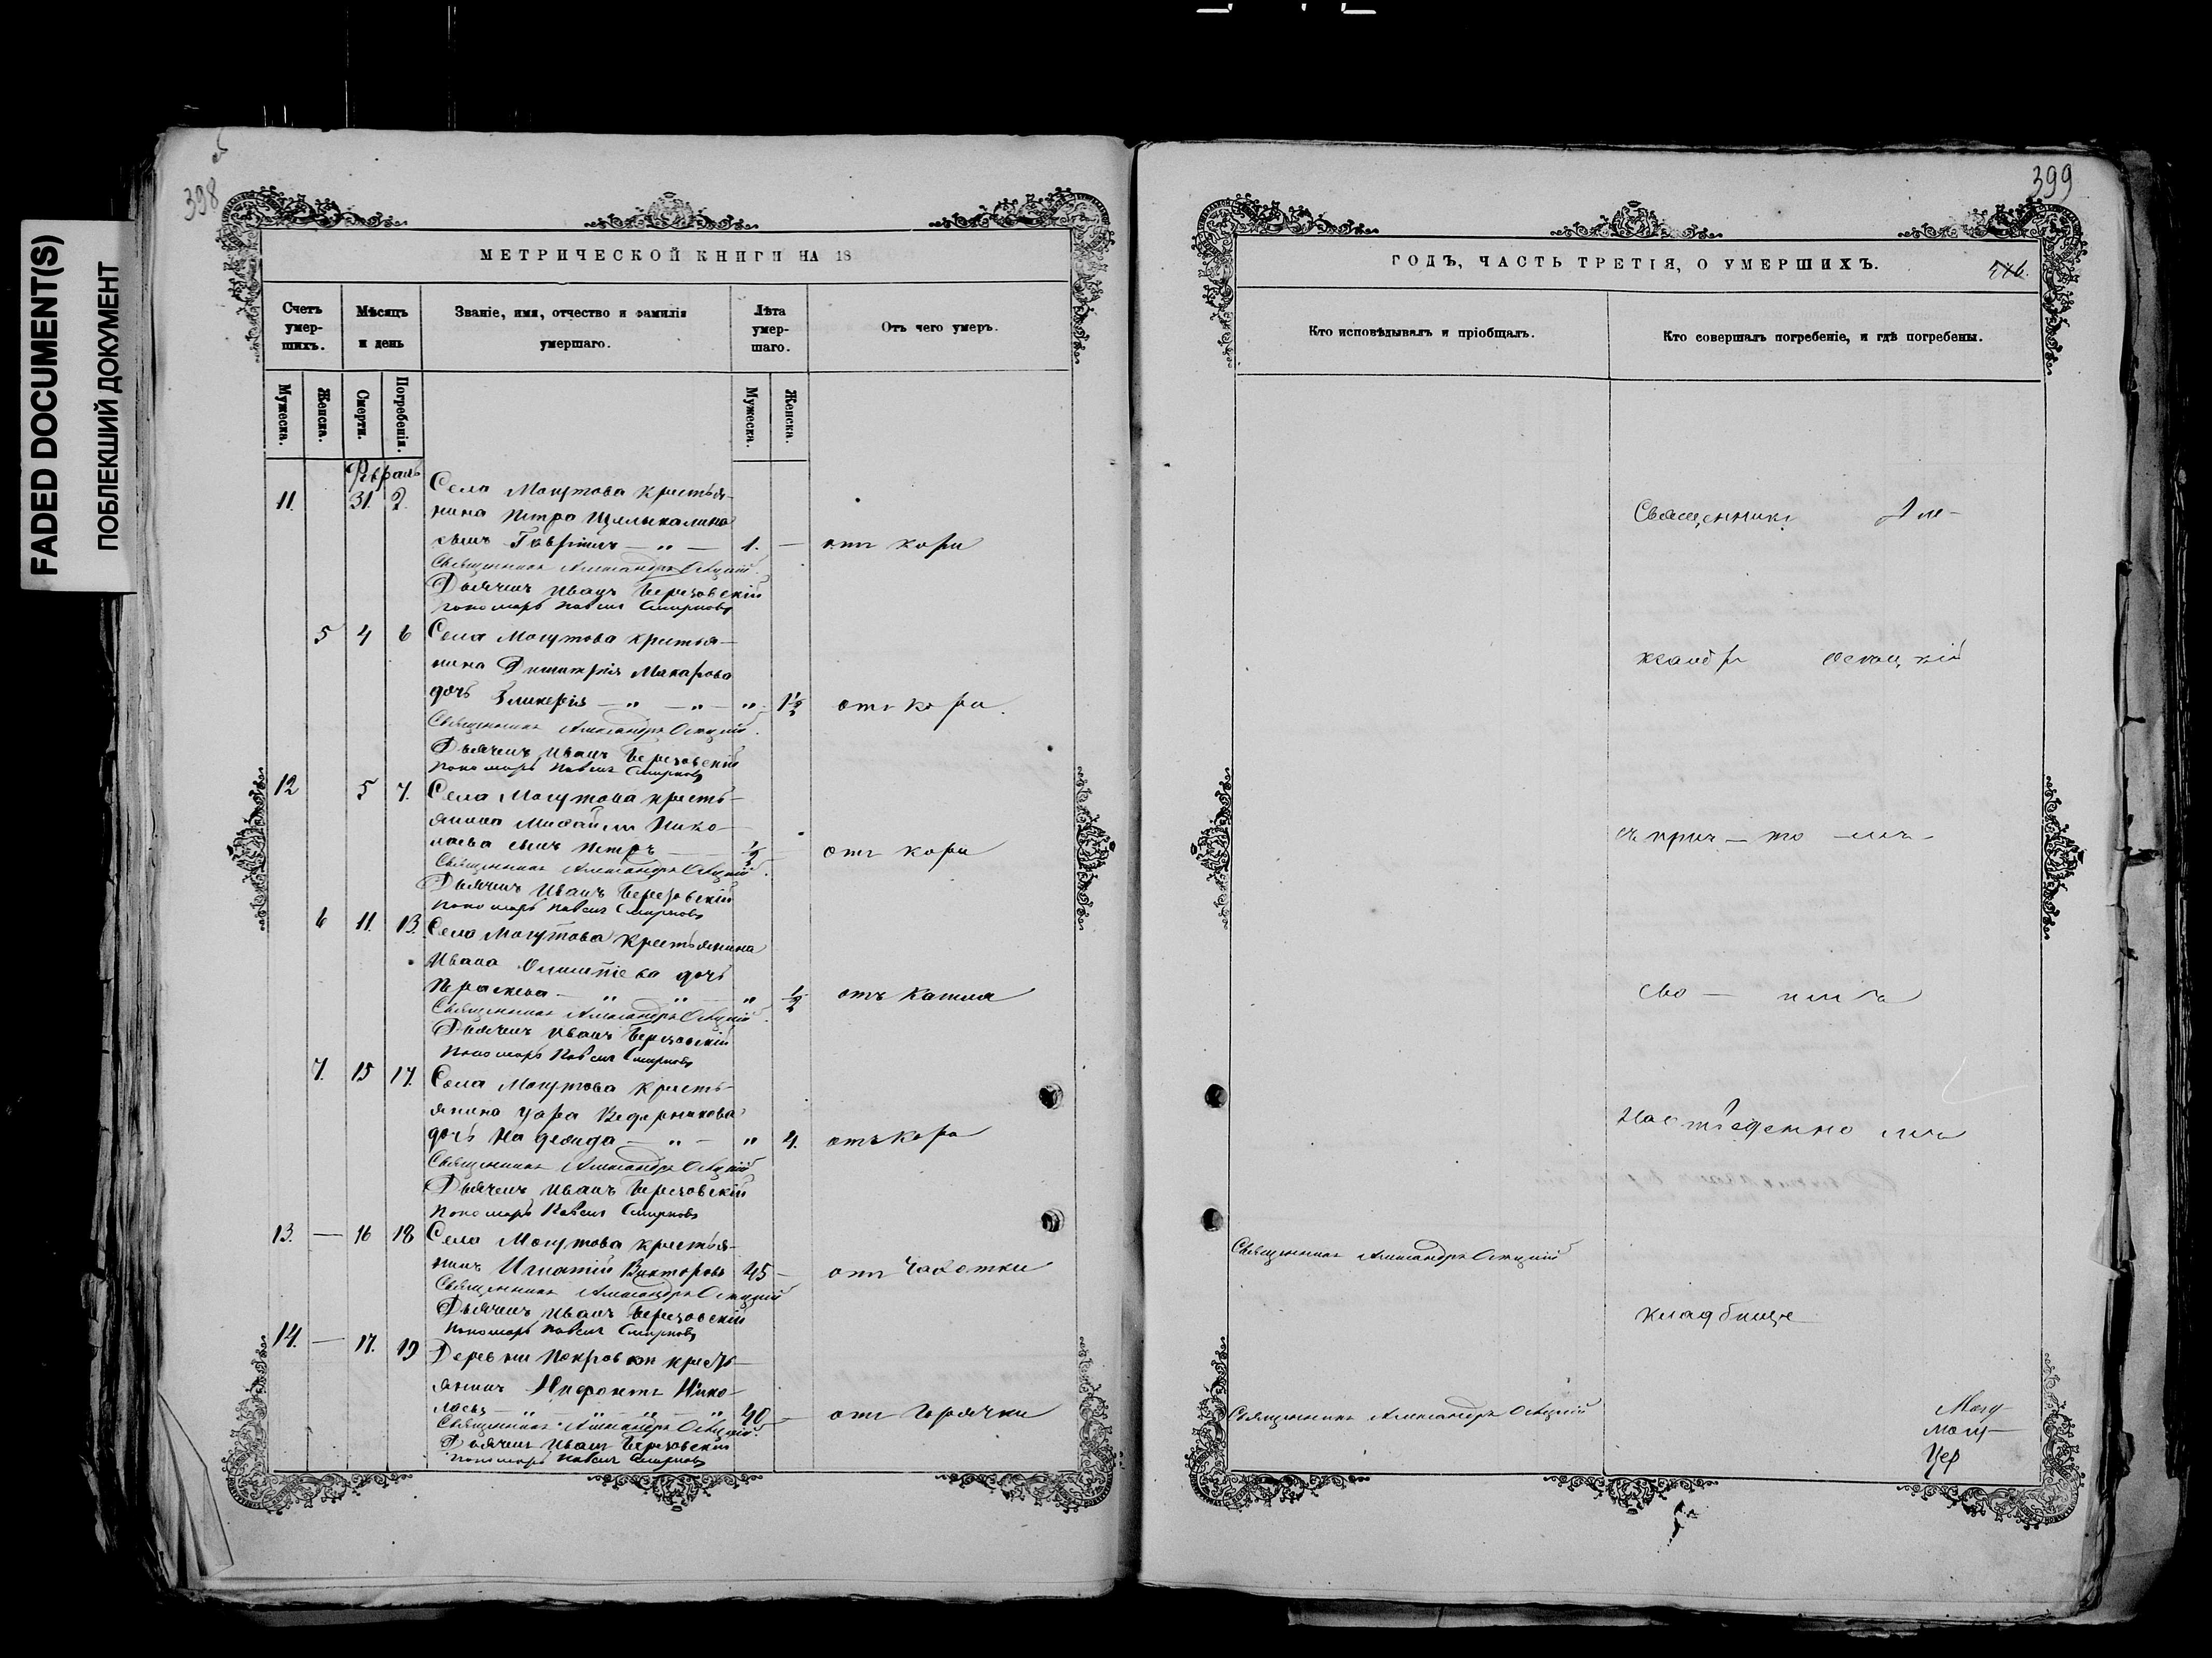 FADED DOCUMENT(S)
ПОБЛЕКШИЙ ДОКУМЕНТ
398
МЕТРИЧЕСКОЙ КНИГИ НА 18
Счетъ умер-шихъ.
Мѣсяцъ и день
Званіе, имя, отчество и фамилія умершаго.
Лѣта умер-шаго.
Отъ чего умеръ.
Мужеска.
Женска.
Смерти.
Погребенія.
Мужеска.
Женска.
Февраль
11. 31. 2. Села Могутова крестья-
нина Петра
сынъ Гавріилъ — „ — 1. — отъ кори
Священникъ Александръ
Дьячекъ Иванъ Березовскій
пономарь Павелъ Смирновъ
5 4 6 Села Могутова крестья-
нина Димитрія Макарова
дочь Гликерія — „ — „ — „ 1½ отъ кори.
Священникъ Александръ
Дьячекъ Иванъ Березовскій
пономарь Павелъ Смирновъ
12 5 7. Села Могутова кресть-
янина Михаила Нико-
лаева сынъ Петръ — ½ — отъ кори
Священникъ Александръ
Дьячекъ Иванъ Березовскій
пономарь Павелъ Смирновъ
6 11. 13. Села Могутова Крестьянина
Ивана дочь
Параскева — „ „ — „ ½ отъ кашля
Священникъ Александръ
Дьячекъ Иванъ Березовскій
пономарь Павелъ Смирновъ
7. 15 17. Села Могутова кресть-
янина Уара Ведерникова
дочь Надежда — „ — „ 4. отъ кори
Священникъ Александръ
Дьячекъ Иванъ Березовскій
пономарь Павелъ Смирновъ
13. — 16 18 Села Могутова крестья-
нинъ Игнатій Викторовъ 45 — отъ чахотки
Священникъ Александръ
Дьячекъ Иванъ Березовскій
пономарь Павелъ Смирновъ
14. — 17. 19 Деревни Покровки кресть-
янинъ Нико-
лаевъ — „ — „ — „ — „ 40 — отъ горячки
Священникъ Александръ
Дьячекъ Иванъ Березовскій
пономарь Павелъ Смирновъ
399
ГОДЪ, ЧАСТЬ ТРЕТІЯ, О УМЕРШИХЪ.
Кто исповѣдывалъ и пріобщалъ.
Кто совершалъ погребеніе, и гдѣ погребены.
Священникъ Але-
ксандръ
съ прич — то — мъ
на
Священникъ Александръ
кладбище
Священникъ Александръ
Могу-
Цер